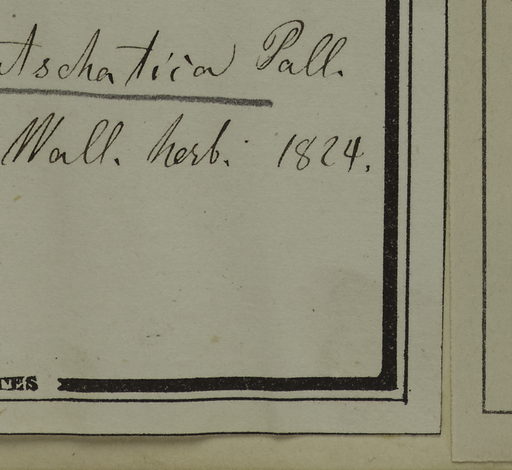 atschatica Pall.
Wall. herb. 1824.
TES